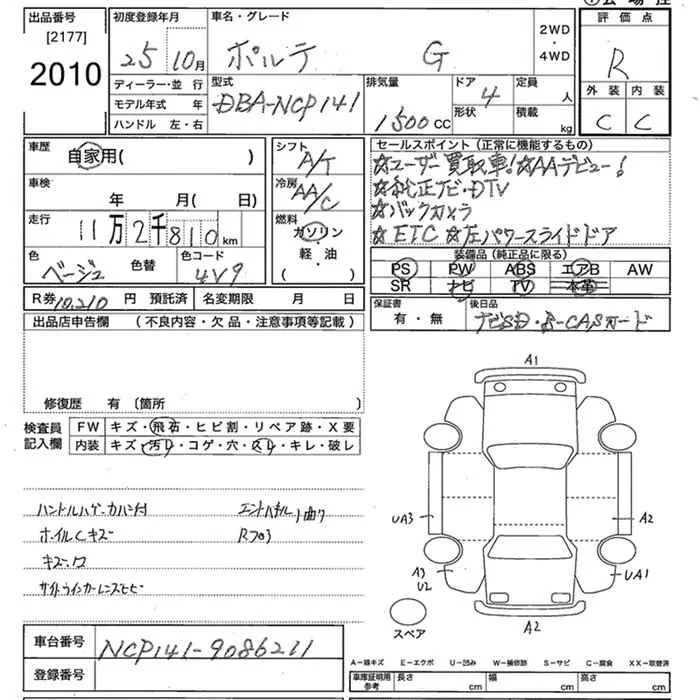 出品番号
[2177]
2010
初度登録年月
25 10月
車名・グレード
ポルテ G
2WD
・
4WD
評価点
R
外装 内装
C C
ディーラー・並 行
モデル年式 年
ハンドル 左・右
型式
DBA-NCP141
排気量
1500CC
ドア
4
形状
定員
人
積載
kg
車歴
自家用( )
車検
年 月( 日)
走行
11万2千810km
色
ベージュ
色替
色コード
4V9
シフト
A/T
冷房
AA/C
燃料
ガソリン
・
軽・油
( )
セールスポイント(正常に機能するもの)
☆ユーザー買取車!☆AAデビュー!
☆純正ナビ・DTV
☆バックカメラ
☆ETC ☆左パワースライドドア
装備品(純正品に限る)
PS PW ABS エアB AW
SR ナビ TV 本革
R券10,210円 預託済 名変期限 月 日
保証書
有・無
後日品
ナビSD・B-CASカード
出品店申告欄 (不良内容・欠品・注意事項等記載)
修復歴 有(箇所 )
検査員
記入欄
FW キズ・飛石・ヒビ割・リペア跡・X要
内装 キズ・汚れ・コゲ・穴・スレ・キレ・破レ
ホイルCキズ
サイドウインカーレンズヒビ
A1
UA3
A2
A3
U2
UA1
A2
スペア
車台番号
NCP141-9086211
登録番号
A-線キズ E-エクボ U-凹み W-補修跡 S-サビ C-腐食 XX-取替済
車庫証明用
参考
長さ cm 幅 cm 高さ cm